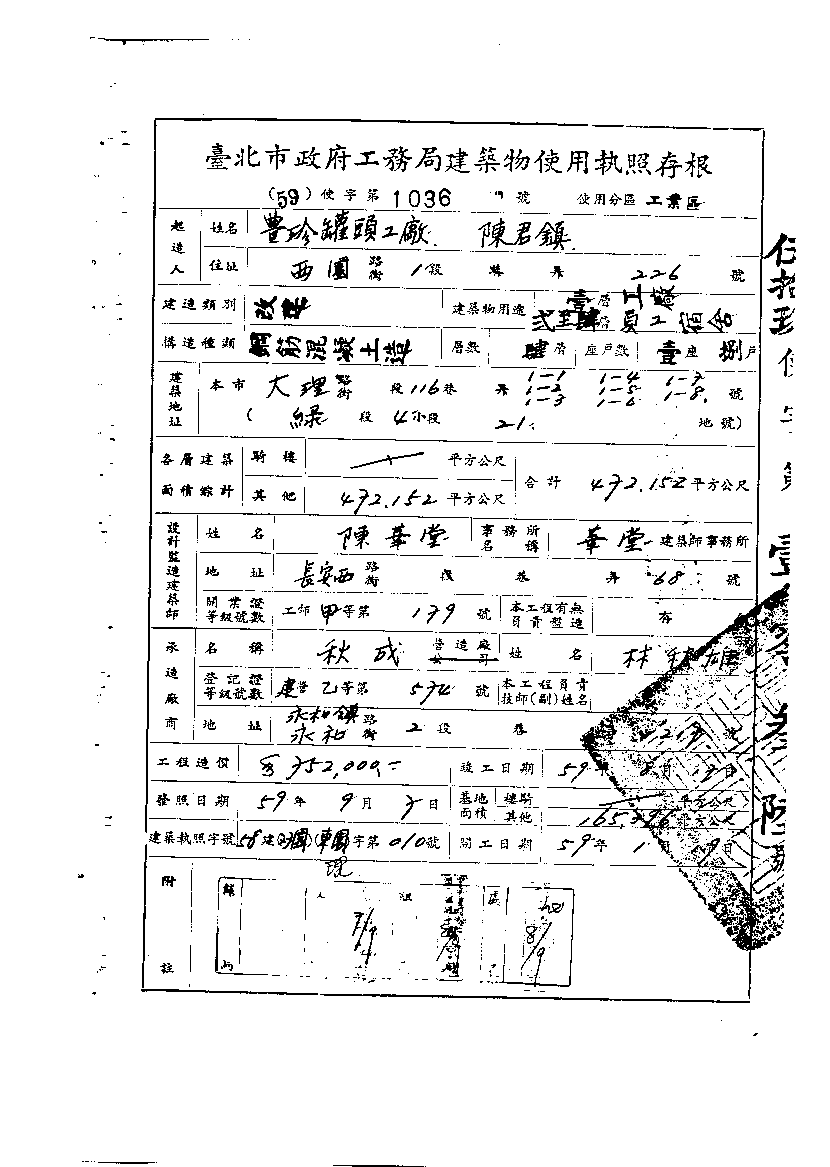 臺北市政府工務局建築物使用執照存根
(59)使字第1036號 使用分區 工業區
起造人 姓名 豊珍罐頭工廠 陳君鎮
住址 西園路街 1段 巷 弄 226 號
建造類別 改建 建築物用途 壹層工廠
貳至肆層員工宿舍
構造種類 鋼筋混凝土造 層數 肆層 座戶數 壹座 捌戶
建築地址 本市 大理路街 段116巷 弄 1-1 1-2 1-3 1-4 1-5 1-6 1-7 1-8 號
( 綠 段 4小段 21 地號)
各層建築面積綜計 騎樓 平方公尺 合計 472.152平方公尺
其他 472.152 平方公尺
設計監造建築師 姓名 陳華堂 事務所名稱 華堂 建築師事務所
地址 長安西路街 段 巷 弄 68 號
開業證等級號數 工師甲等第 179 號 本工程有無負責監造 有
承造廠商 名稱 秋成 營造廠公司 姓名 林 雄
登記證等級號數 建營乙等第 574 號 本工程負責技師(副)姓名
地址 永和鎮永和路街 2段 巷 號
工程造價 $752,000- 竣工日期 59年 月 日
發照日期 59年 9月 7日 基地面積 騎樓 平方公尺
其他 平方公尺
建築執照字號 58建 字第010號 開工日期 59年 1月 日
附註
伍拾玖使字第壹零叁陸號